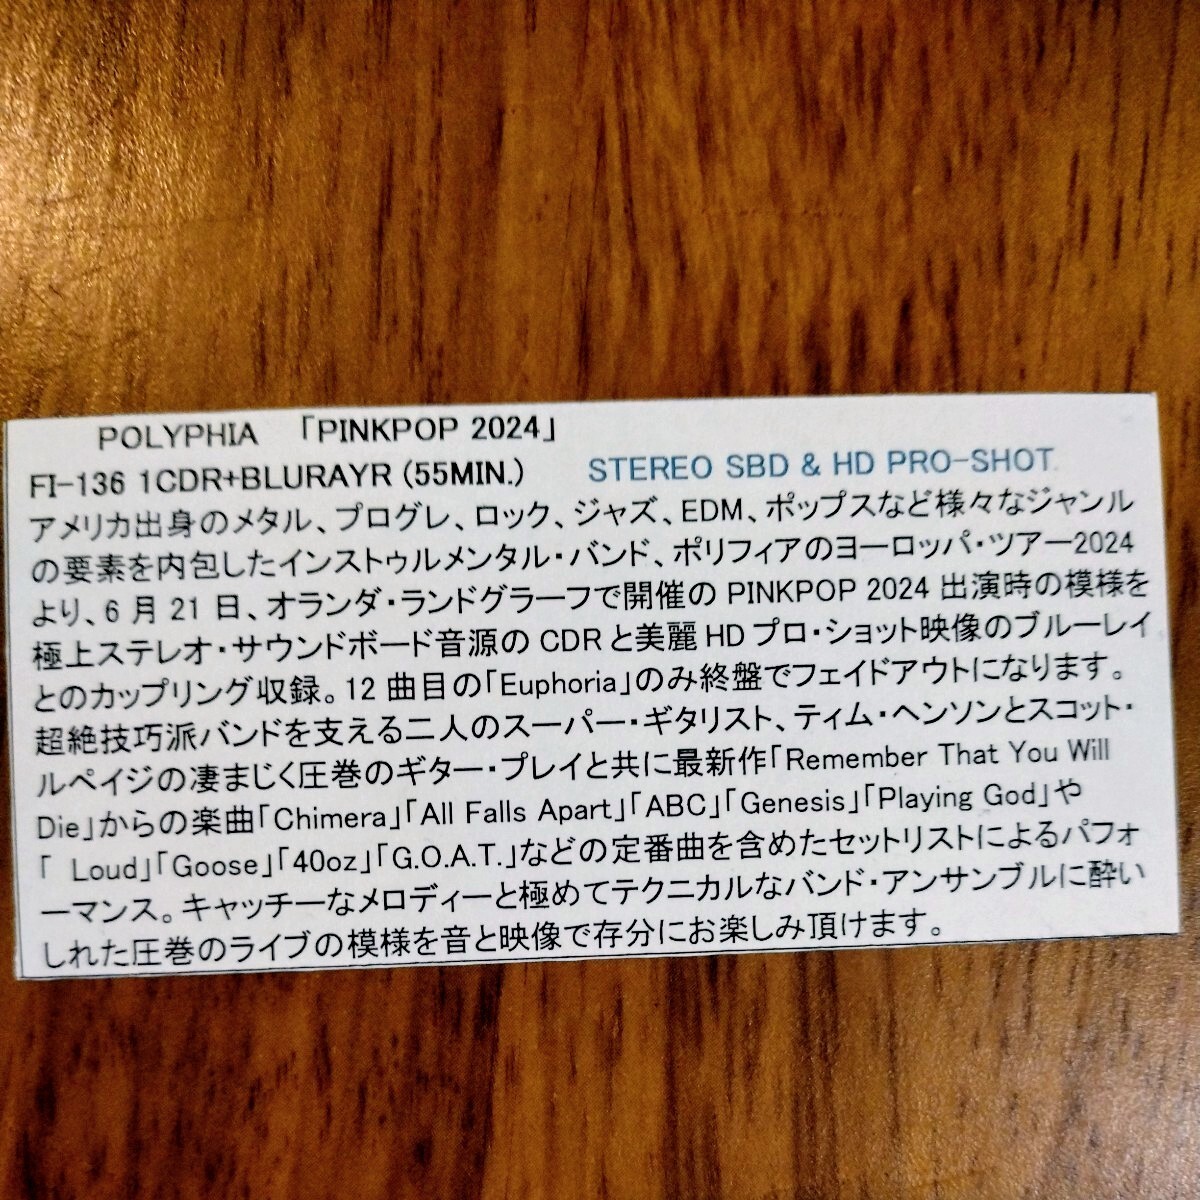 POLYPHIA 「PINKPOP 2024」
FI-136 1CDR+BLURAYR (55MIN.) STEREO SBD & HD PRO-SHOT.
アメリカ出身のメタル、プログレ、ロック、ジャズ、EDM、ポップスなど様々なジャンル
の要素を内包したインストゥルメンタル・バンド、ポリフィアのヨーロッパ・ツアー2024
より、6月21日、オランダ・ランドグラーフで開催の PINKPOP 2024 出演時の模様を
極上ステレオ・サウンドボード音源の CDR と美麗 HD プロ・ショット映像のブルーレイ
とのカップリング収録。12 曲目の「Euphoria」のみ終盤でフェイドアウトになります。
超絶技巧派バンドを支える二人のスーパー・ギタリスト、ティム・ヘンソンとスコット・
ルペイジの凄まじく圧巻のギター・プレイと共に最新作「Remember That You Will
Die」からの楽曲「Chimera」「All Falls Apart」「ABC」「Genesis」「Playing God」や
「 Loud」「Goose」「40oz」「G.O.A.T.」などの定番曲を含めたセットリストによるパフォ
ーマンス。キャッチーなメロディーと極めてテクニカルなバンド・アンサンブルに酔い
しれた圧巻のライブの模様を音と映像で存分にお楽しみ頂けます。